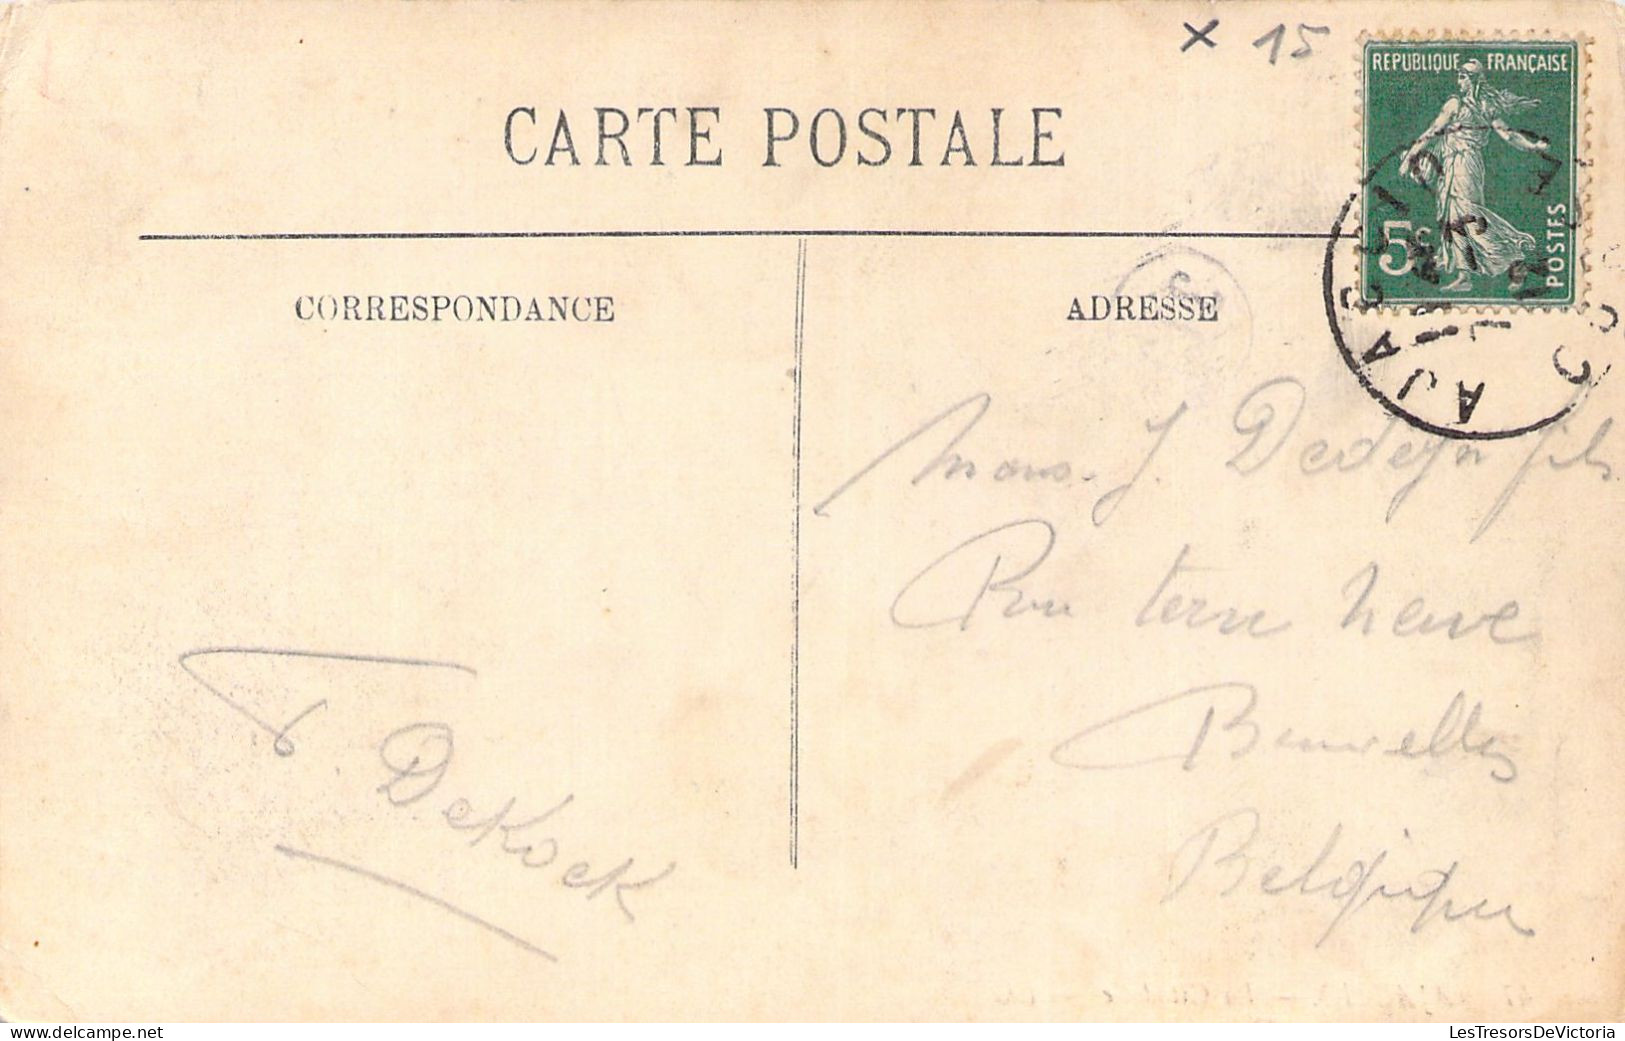 × 15
RÉPUBLIQUE FRANÇAISE
5c
POSTES
CARTE POSTALE
AJACCIO
CORRESPONDANCE
ADRESSE
Mons. J. Dedeyn fils
Rue terre Neuve
Bruxelles
Belgique
DeKock
LesTresorsDeVictoria